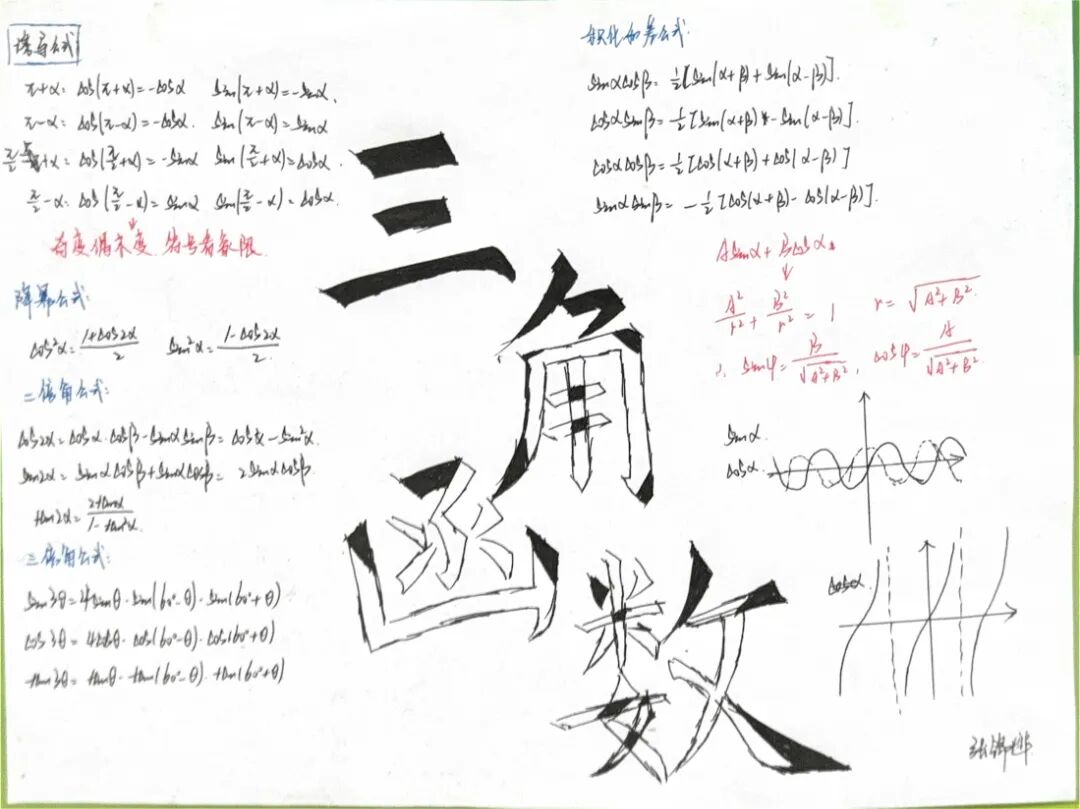 诱导公式
π+α: cos(π+α)=-cosα sin(π+α)=-sinα.
π-α: cos(π-α)=-cosα. sin(π-α)=sinα
π/2+α: cos(π/2+α)=-sinα sin(π/2+α)=cosα.
π/2-α: cos(π/2-α)=sinα sin(π/2-α)=cosα.
奇变偶不变,符号看象限.
降幂公式:
cos²α=(1+cos2α)/2 sin²α=(1-cos2α)/2.
二倍角公式:
cos2α=cosα·cosβ-sinαsinβ=cos²α-sin²α.
sin2α=sinαcosβ+sinαcosβ=2sinαcosβ.
tan2α=2tanα/(1-tan²α).
三倍角公式:
sin3θ=4sinθ·sin(60°-θ)·sin(60°+θ)
cos3θ=4cosθ·cos(60°-θ)·cos(60°+θ)
tan3θ=tanθ·tan(60°-θ)·tan(60°+θ)
三
角
函
数
积化和差公式:
sinαcosβ=½[sin(α+β)+sin(α-β)].
cosαsinβ=½[sin(α+β)-sin(α-β)].
cosαcosβ=½[cos(α+β)+cos(α-β)]
sinαsinβ=-½[cos(α+β)-cos(α-β)].
Asinα+Bcosα.
↓
A²/r²+B²/r²=1 r=√(A²+B²).
∴ sinφ=B/√(A²+B²), cosφ=A/√(A²+B²).
sinα.
cosα.
cosα.